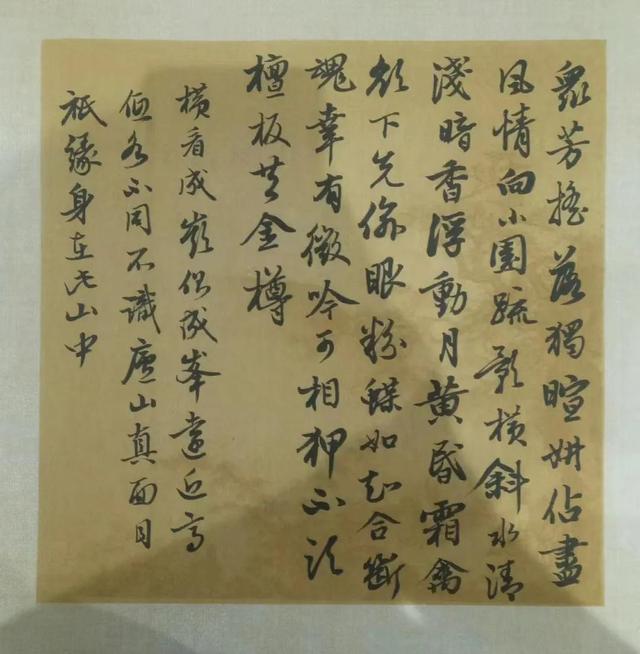 衆芳搖落獨暄妍佔盡
風情向小園疏影橫斜水清
淺暗香浮動月黃昏霜禽
欲下先偷眼粉蝶如知合斷
魂幸有微吟可相狎不須
檀板共金樽
橫看成嶺側成峯遠近高
低各不同不識廬山真面目
祇緣身在此山中